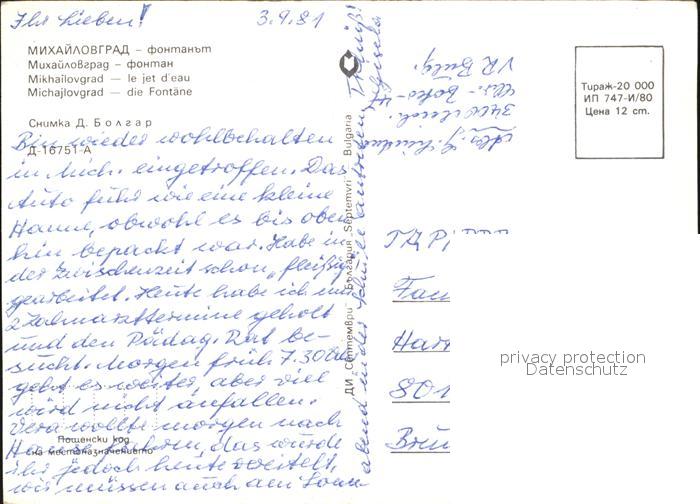 Ihr Lieben! 3.9.81
МИХАЙЛОВГРАД – фонтанът
Михайловград – фонтан
Mikhaïlovgrad — le jet d'eau
Michajlovgrad — die Fontäne
Снимка Д. Болгар
Д-16751-А
Bin wieder wohlbehalten
in Mich. eingetroffen. Das
Auto fuhr wie eine kleine
Hanne, obwohl es bis oben
hin bepackt war. Habe in
der Zwischenzeit schon „fleißig"
gearbeitet. Heute habe ich mir
2 Zahnarzttermine geholt
und den Pädag. Rat be-
sucht. Morgen früh 7.30 Uhr
geht es weiter, aber viel
wird nicht anfallen.
Vera wollte morgen nach
Hause fahren, das würde
ihr jedoch heute vereitelt,
wir müssen auch am Sonn
abend in der Schule antreten.
Пощенски код
на местоназначението
ДИ „Септември" – България „Septemvri" – Bulgaria
3400 Mich.
VR Bulg.
Тираж-20 000
ИП 747-И/80
Цена 12 ст.
Fam
801
privacy protection
Datenschutz